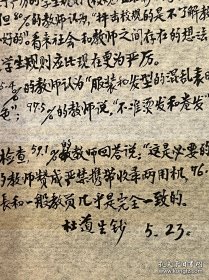 80%的教师认为,"抨击校规的是不了解教
好的"。看来社会和教师之间存在的想法
学生规则在比现在更为严厉。
的教师认为"服装和发型的混乱表
";97.3%的教师说,"不准烫发和卷发"
检查,59.1%教师回答说:"这是必要的
教师赞成严禁携带收录两用机。76.
长和一般教员几乎是完全一致的。
杜道生钞 5.23.